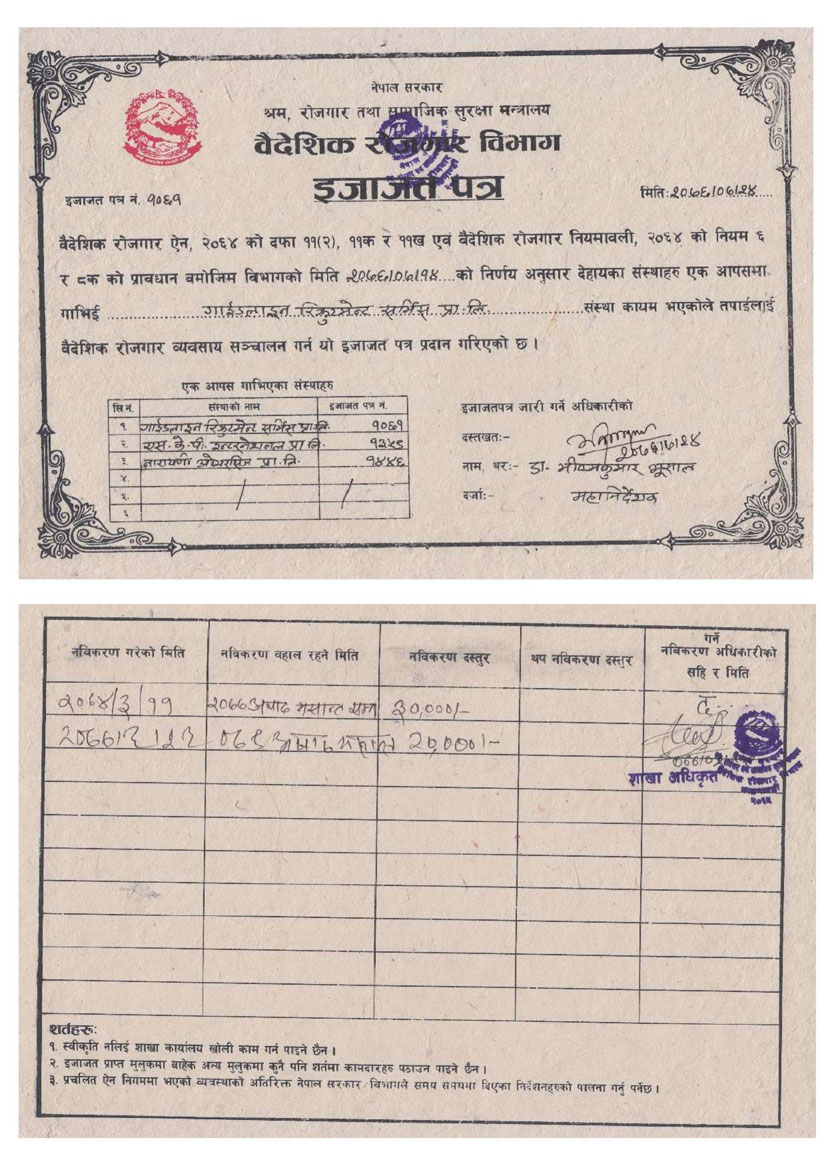 नेपाल सरकार
श्रम, रोजगार तथा सामाजिक सुरक्षा मन्त्रालय
वैदेशिक रोजगार विभाग
इजाजत पत्र
इजाजत पत्र नं. १०६१
मिति:
वैदेशिक रोजगार ऐन, २०६४ को दफा ११(२), ११क र ११ख एवं वैदेशिक रोजगार नियमावली, २०६४ को नियम ६
र ८क को प्रावधान बमोजिम विभागको मिति को निर्णय अनुसार देहायका संस्थाहरु एक आपसमा
गाभिई गाईडलाइन रिक्रुटमेन्ट सर्भिस प्रा.लि. संस्था कायम भएकोले तपाईलाई
वैदेशिक रोजगार व्यवसाय सञ्चालन गर्न यो इजाजत पत्र प्रदान गरिएको छ ।
एक आपस गाभिएका संस्थाहरु
सि.नं. संस्थाको नाम इजाजत पत्र नं.
१ गाईडलाइन रिक्रुटमेन्ट सर्भिस प्रा.लि. १०६१
२. एस.के.पी. इन्टरनेशनल प्रा.लि.
३. नारायणी प्रा.लि. १४४६
४.
५.
६
इजाजतपत्र जारी गर्ने अधिकारीको
दस्तखत:-
नाम, थर:- डा. भीष्मकुमार भूसाल
दर्जा:- महानिर्देशक
नविकरण गरेको मिति नविकरण वहाल रहने मिति नविकरण दस्तुर थप नविकरण दस्तुर गर्ने नविकरण अधिकारीको सहि र मिति
२०७७ अषाढ मसान्त सम्म ३०,०००/-
२०,०००/-
शाखा अधिकृत
शर्तहरु:
१. स्वीकृति नलिई शाखा कार्यालय खोली काम गर्न पाइने छैन ।
२. इजाजत प्राप्त मुलुकमा बाहेक अन्य मुलुकमा कुनै पनि शर्तमा कामदारहरु पठाउन पाइने छैन ।
३. प्रचलित ऐन नियममा भएको व्यवस्थाको अतिरिक्त नेपाल सरकार/विभागले समय समयमा दिएका निर्देशनहरुको पालना गर्नु पर्नेछ ।